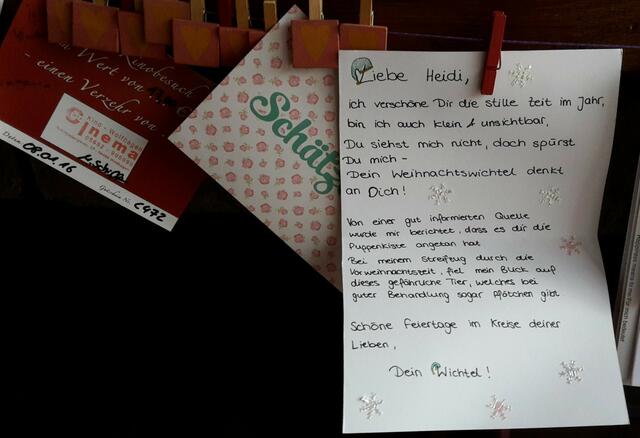 Kinobesuch
Wert von
- einen Verzehr von
Kino - Wolfhagen
Cinema
Datum 09.01.16
Gutschein Nr. C472
Schätz
Liebe Heidi,
ich verschöne Dir die stille Zeit im Jahr,
bin ich auch klein & unsichtbar,
Du siehst mich nicht, doch spürst
Du mich -
Dein Weihnachtswichtel denkt
an Dich!
Von einer gut informierten Quelle
wurde mir berichtet, dass es dir die
Puppenkiste angetan hat
Bei meinem Streifzug durch die
Vorweihnachtszeit, fiel mein Blick auf
dieses gefährliche Tier, welches bei
guter Behandlung sogar Pfötchen gibt
Schöne Feiertage im Kreise deiner
Lieben,
Dein Wichtel!